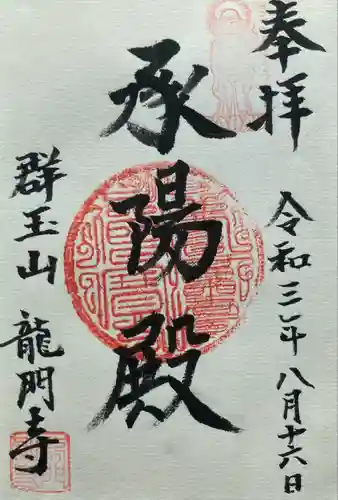 奉拝
令和三年八月十六日
承陽殿
群玉山
龍門寺